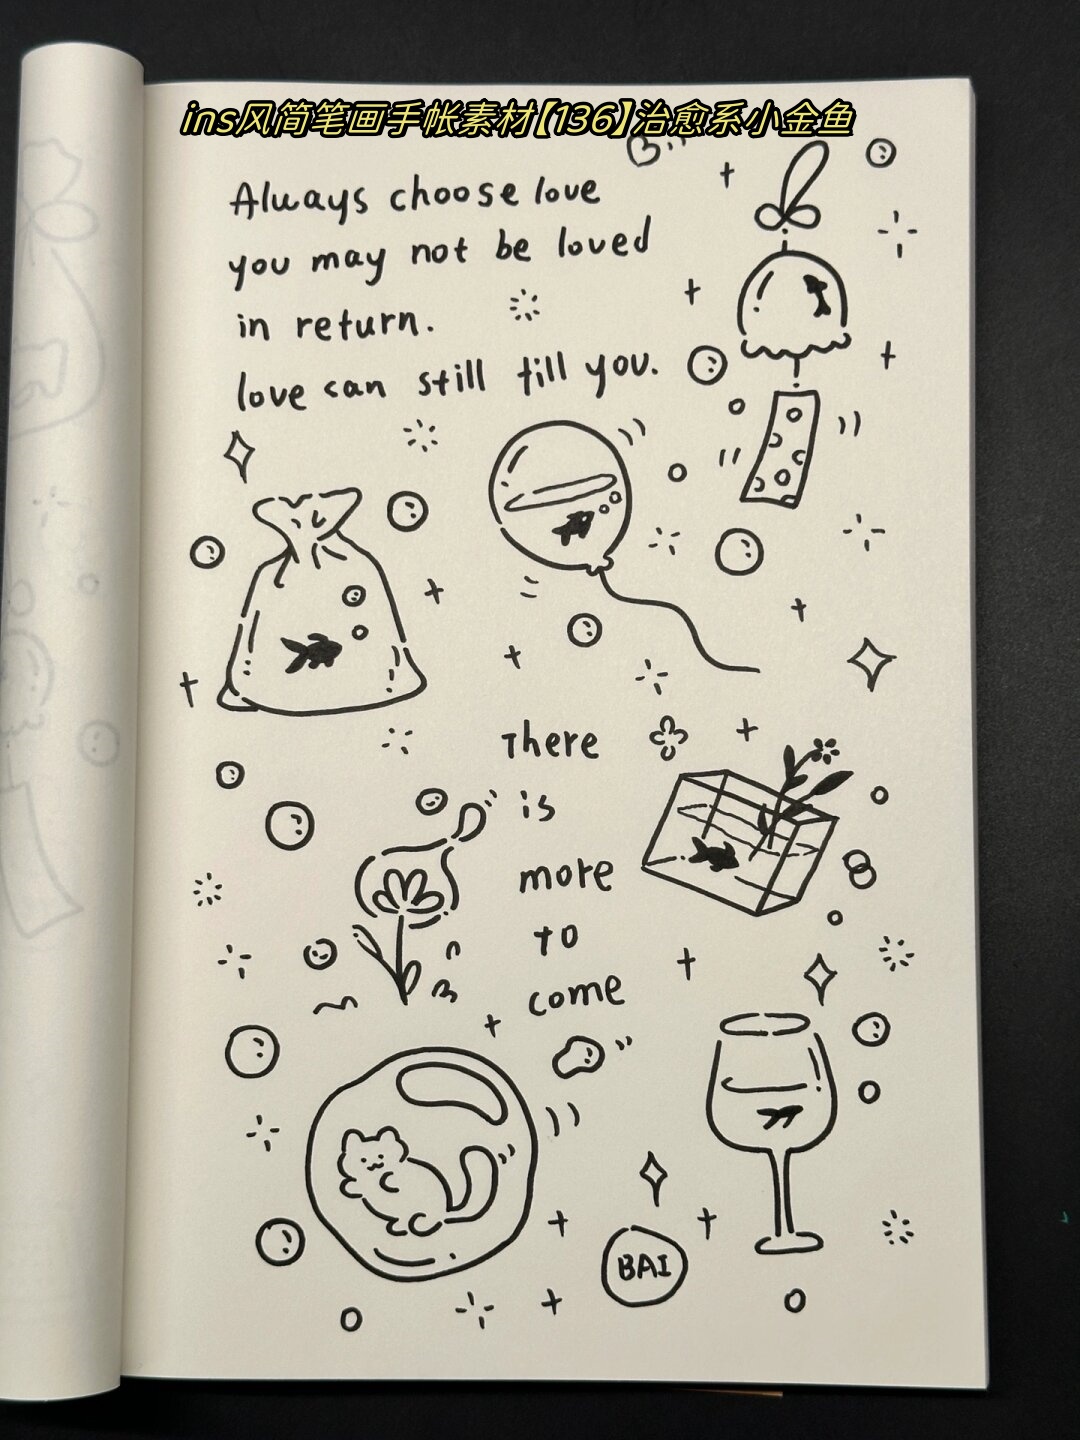 ins风简笔画手帐素材【136】治愈系小金鱼
Always choose love
you may not be loved
in return.
love can still till you.
There
is
more
to
come
BAI